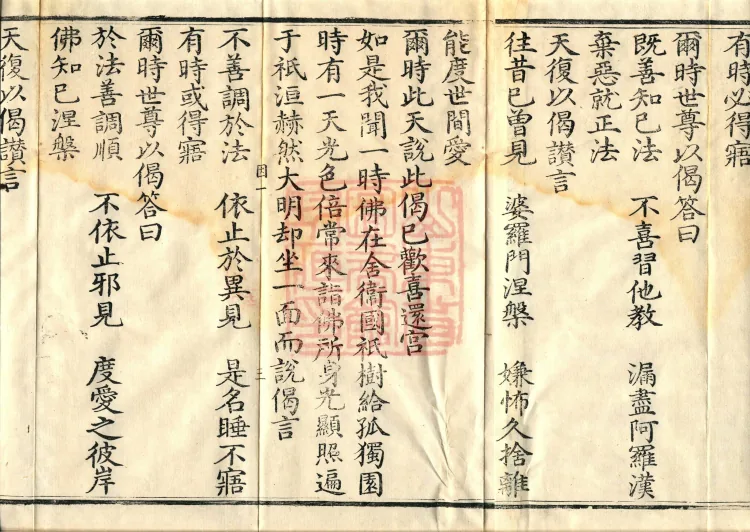 有時必得寤
爾時世尊以偈答曰
既善知已法　不喜習他教　漏盡阿羅漢
棄惡就正法
天復以偈讃言
往昔已曾見　婆羅門涅槃　嫌怖久捨離
能度世間愛
爾時此天說此偈已歡喜還宮
如是我聞一時佛在舍衛國祇樹給孤獨園
時有一天光色倍常來詣佛所身光顯照遍
于祇洹赫然大明却坐一面而說偈言
一　三
不善調於法　依止於異見　是名睡不寤
有時或得寤
爾時世尊以偈答曰
於法善調順　不依止邪見　度愛之彼岸
佛知已涅槃
天復以偈讃言